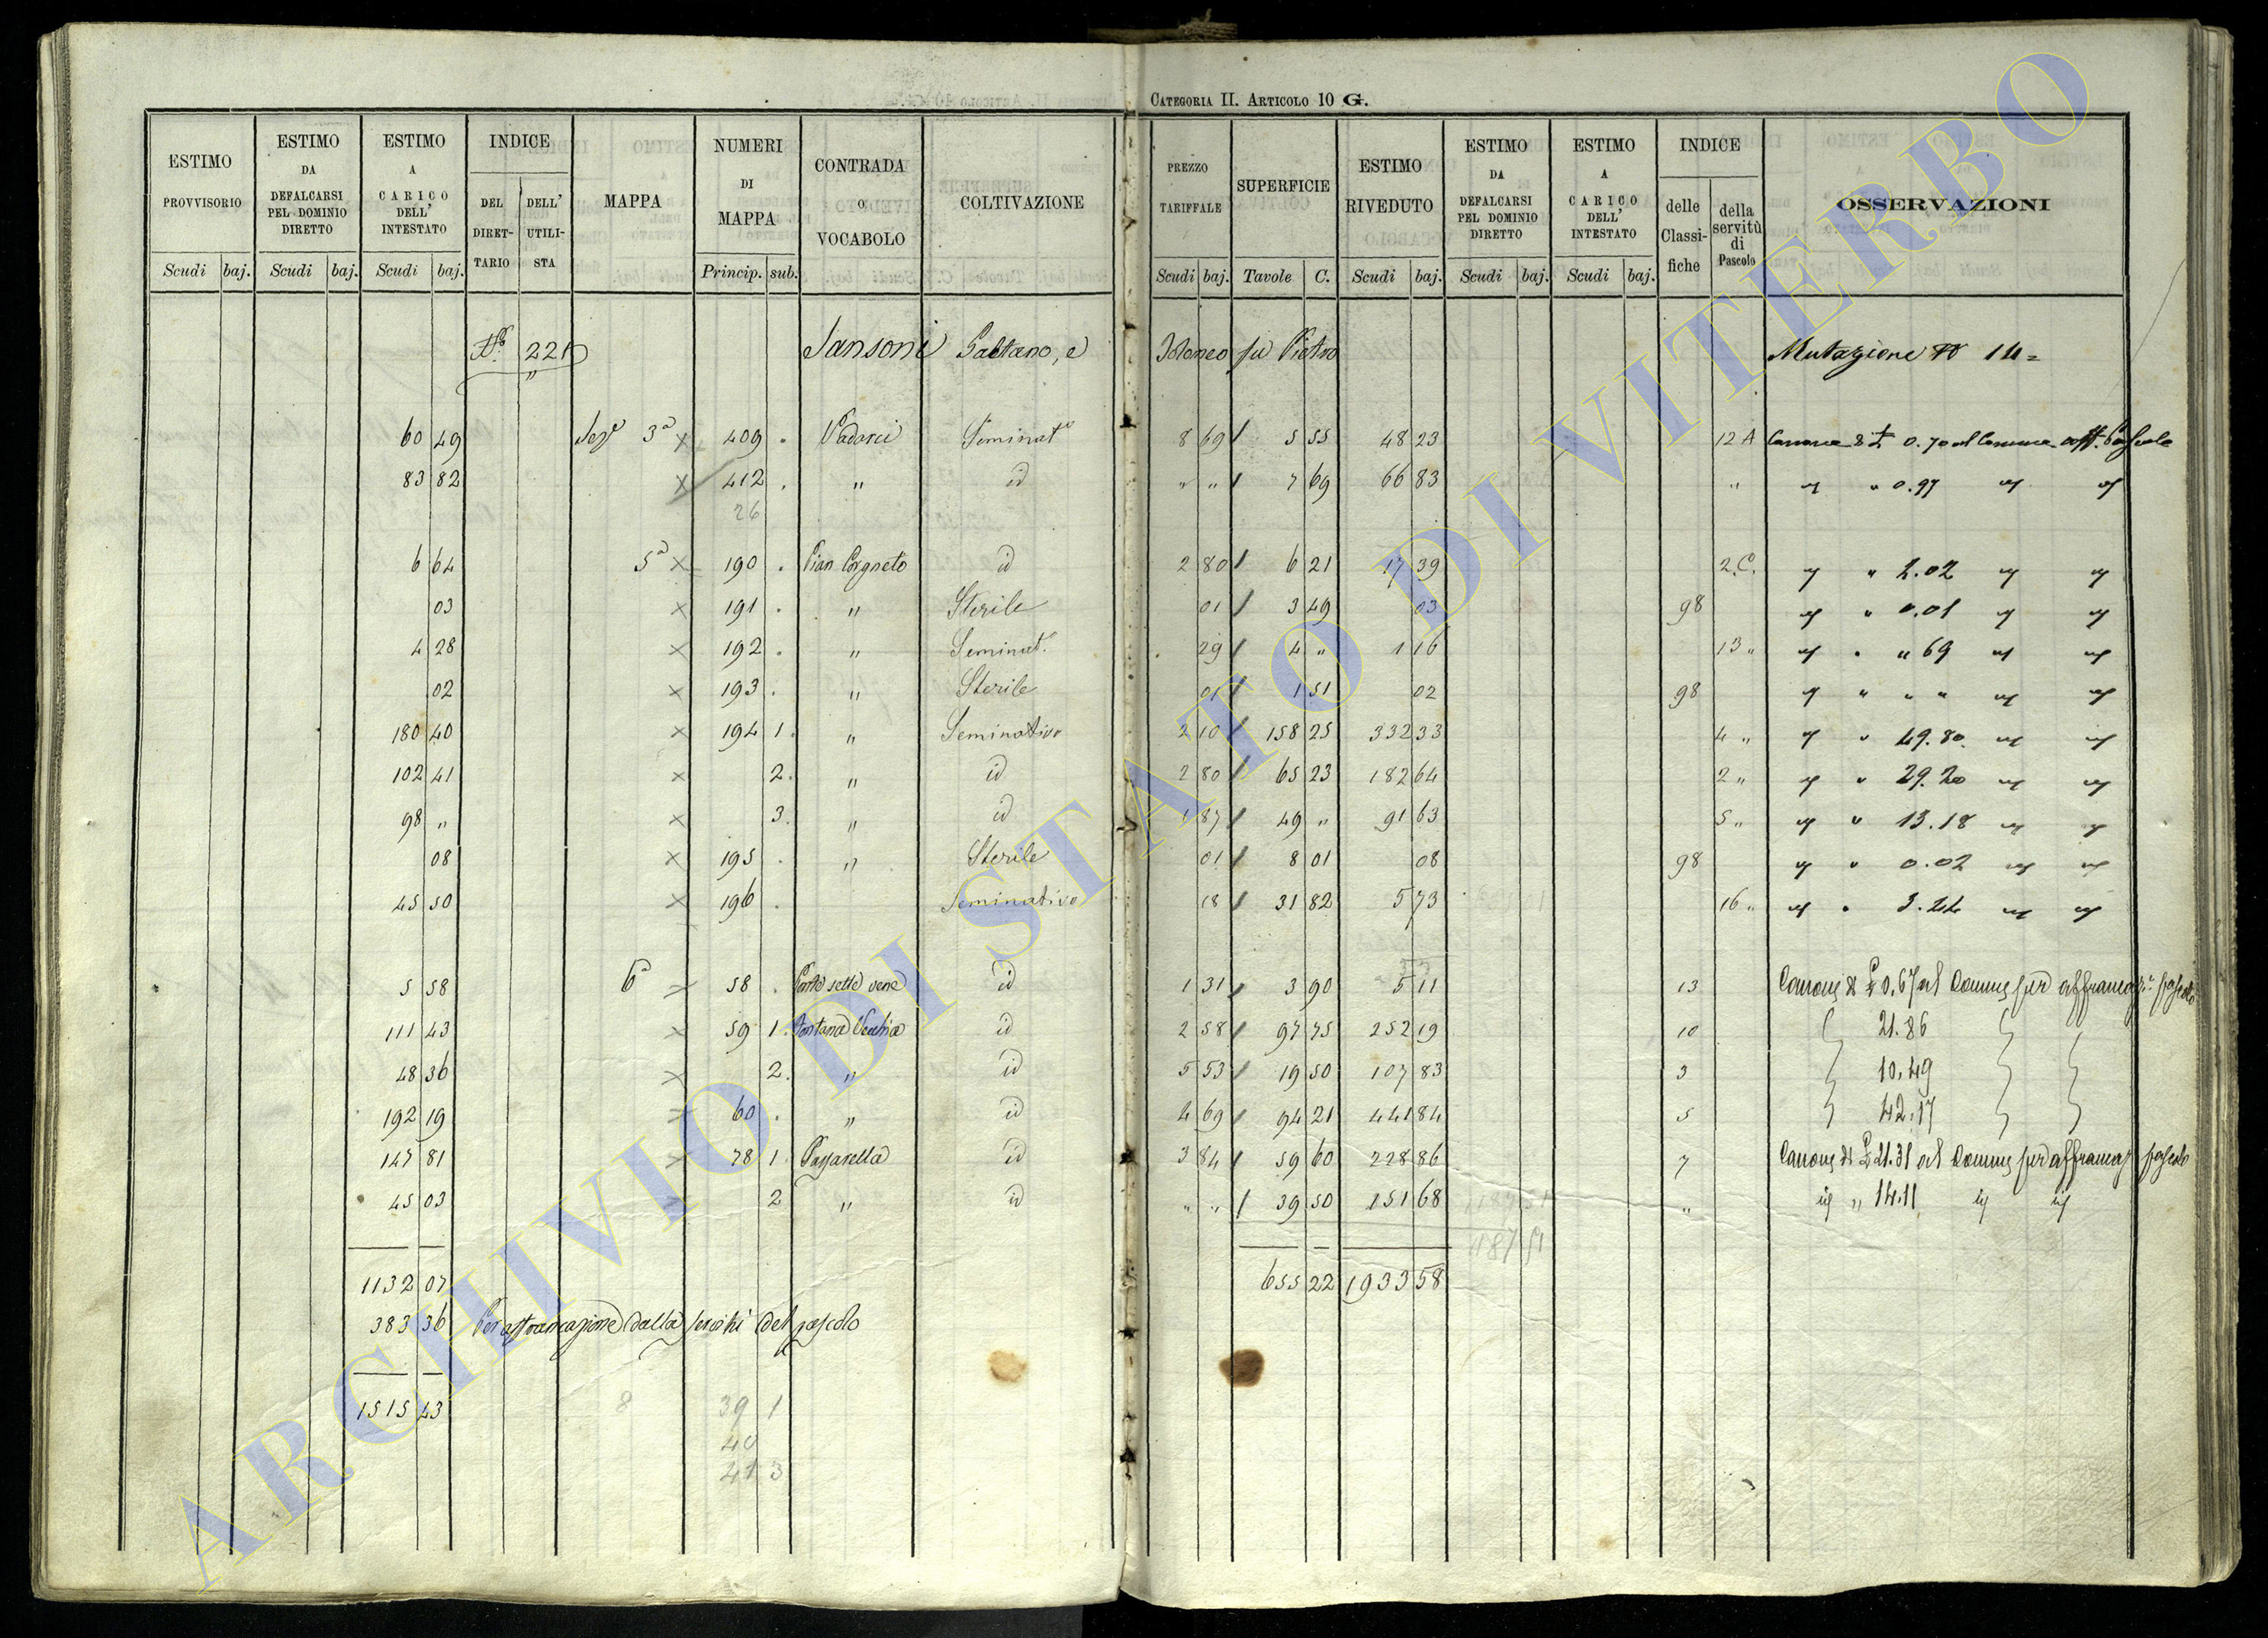 CATEGORIA II. ARTICOLO 10 G.
ESTIMO PROVVISORIO Scudi baj.
ESTIMO DA DEFALCARSI PEL DOMINIO DIRETTO Scudi baj.
ESTIMO A CARICO DELL' INTESTATO Scudi baj.
INDICE DEL DIRET-TARIO DELL' UTILI-STA
MAPPA
NUMERI DI MAPPA Princip. sub.
CONTRADA O VOCABOLO
COLTIVAZIONE
PREZZO TARIFFALE Scudi baj.
SUPERFICIE Tavole C.
ESTIMO RIVEDUTO Scudi baj.
ESTIMO DA DEFALCARSI PEL DOMINIO DIRETTO Scudi baj.
ESTIMO A CARICO DELL' INTESTATO Scudi baj.
INDICE delle Classi-fiche della servitù di Pascolo
OSSERVAZIONI
No. 221 Sansoni Gaetano, e fu Pietro Mutazione No 14=
60 49 Seze 3a × 409 . Seminato 8 69 5 55 48 23 12 A Canone di £ 0.70 al Comune aff. Pascolo
83 82 × 412 . " id " " 7 69 66 83 " " 0.97
26
6 64 5a × 190 . id 2 80 6 21 17 39 2.C. " 2.02
03 × 191 . " Sterile 01 3 49 03 98 " 0.01
4 28 × 192 . " Seminato. 29 4 " 1 16 13 " " " 69
02 × 193 . " Sterile 01 1 51 02 98 " " "
180 40 × 194 1. " Seminativo 2 10 158 25 332 33 4 " " 49.80
102 41 × 2. " id 2 80 65 23 182 64 2 " " 29.20
98 " × 3. " id 1 87 49 " 91 63 5 " " 13.18
08 × 195 . " Sterile 01 8 01 08 98 " 0.02
45 50 × 196 . Seminativo 18 31 82 5 73 16 " " 3.24
5 58 6a × 58 . Ponte sette vene id 1 31 3 90 5 11 13 Canone di £ 0.67 al Comune per pascolo
111 43 × 59 1. Fontana Vecchia id 2 58 97 75 252 19 10 21.86
48 36 × 2. " id 5 53 19 50 107 83 3 10.49
192 19 × 60 . " id 4 69 94 21 441 84 5 42.17
147 81 × 78 1 Passarella id 3 84 59 60 228 86 7 Canone di £ 21.31 al Comune per pascolo
45 03 2 " id " " 39 50 151 68 " " 14.11
1187 51
1132 07 655 22 1933 58
383 36 Per affrancazione dalla servitù del pascolo
1515 43
8 39 1
40
41 3
ARCHIVIO DI STATO DI VITERBO